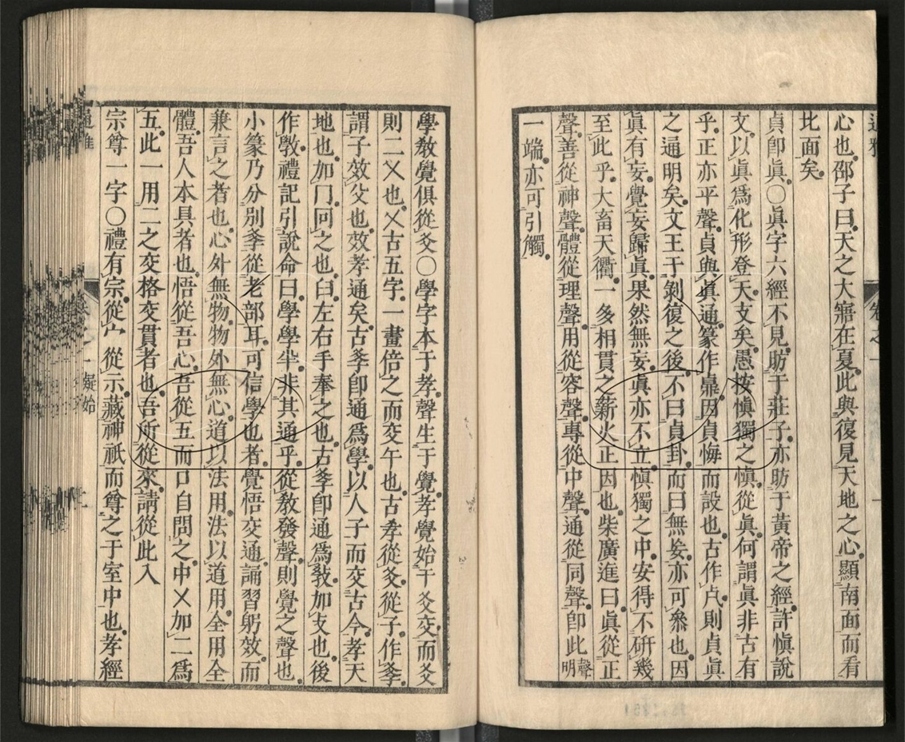 心也邵子曰天之大䆠在夏此與復見天地之心顯南面而看
北面矣
貞卽眞〇眞字六經不見昉于莊子亦昉于黃帝之經許愼說
文以眞爲化形登天支矣愚按愼獨之愼從眞何謂眞非古有
乎正亦平聲貞與眞通篆作鼑因貞悔而設也古作𠂧則貞眞
之通明矣文王于剝復之後不曰貞卦而曰無妄亦可叅也因
眞有妄覺妄歸眞果然無妄眞亦不立愼獨之中安得不硏幾
至此乎大畜天衢一多相貫之薪火正因也柴廣進曰眞從正
聲善從神聲體從理聲用從容聲專從中聲通從同聲卽此聲明
一端亦可引觸
學敎覺俱從爻〇學字本于孝聲生于覺孝覺始于爻交而爻
則二㐅也㐅古五字一畫倍之而交午也古孝從爻從子作㝯
謂子效父也效孝通矣古㝯卽通爲學以人子而交古今孝天
地也加冂冋之也𦥑左右手奉之也古㝯卽通爲敎加攴也後
作斆禮記引說命曰學學半非其通乎從敎發聲則覺之聲也
小篆乃分別㝯從老部耳可信學也者覺悟交通誦習躬效而
兼言之者也心外無物物外無心道以法用法以道用全用全
體吾人本具者也悟從吾心吾從五而口自問之中㐅加二爲
五此一用二之交格交貫者也吾所從來請從此入
宗尊一字〇禮有宗從宀從示藏神祇而尊之于室中也孝經